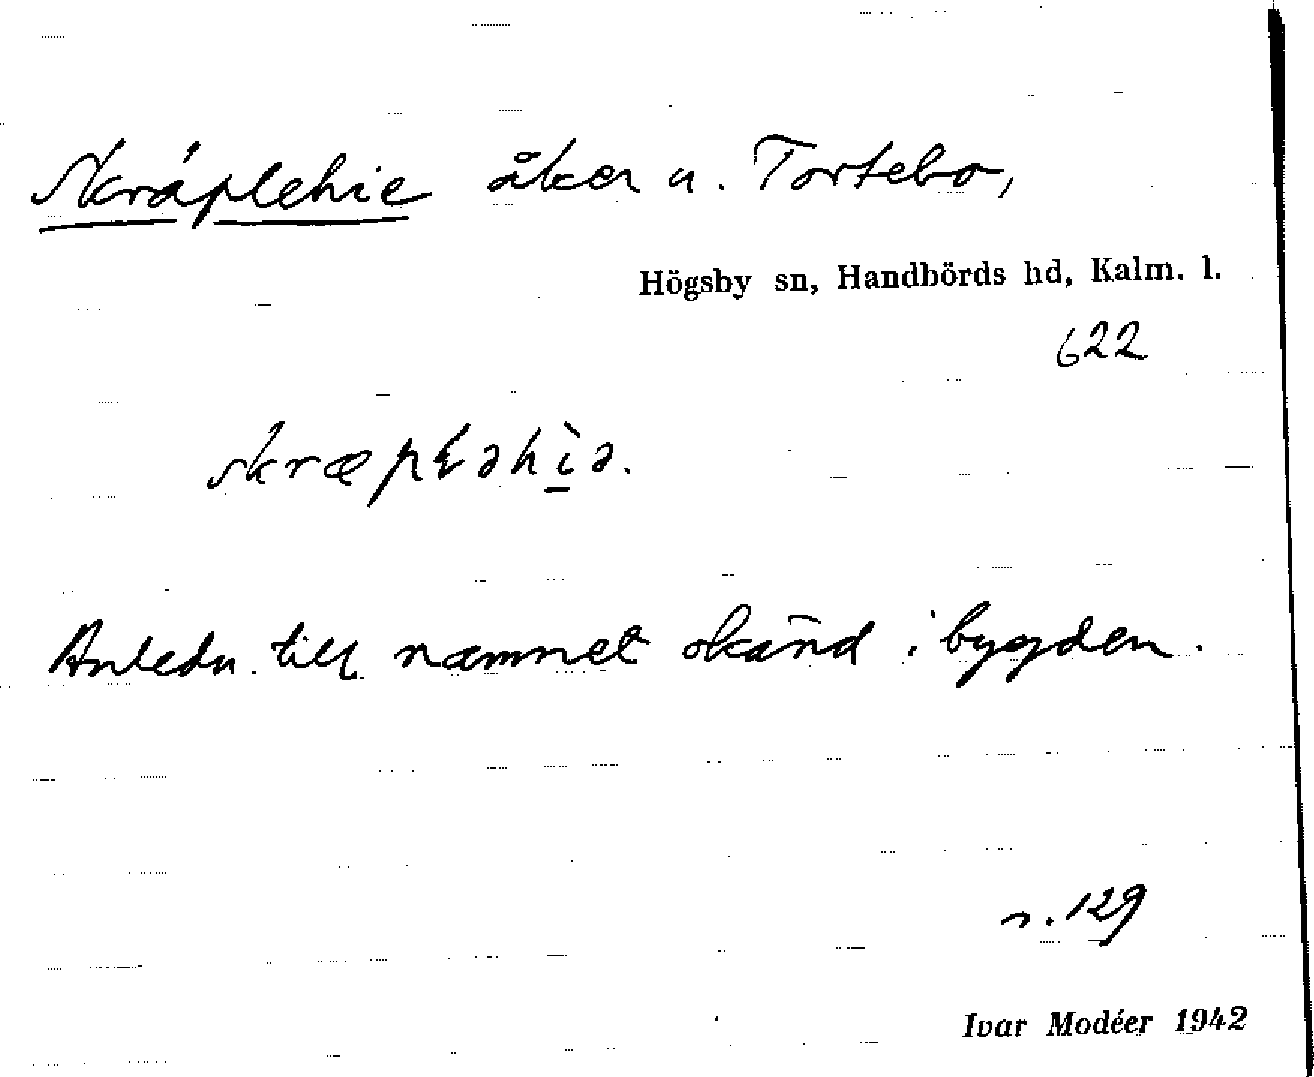 Skräplehie åker u. Tortebo,
Högsby sn, Handbörds hd, Kalm. l.
622
skræpləhìə.
Anledn. till namnet okänd i bygden.
s. 129
Ivar Modéer 1942